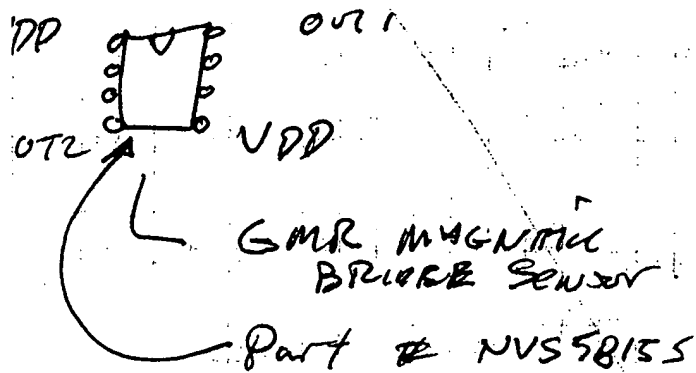 DD OUT1
OT2 VDD
GMR MAGNETIC
BRIDGE SENSOR
Part # NVS5B15S